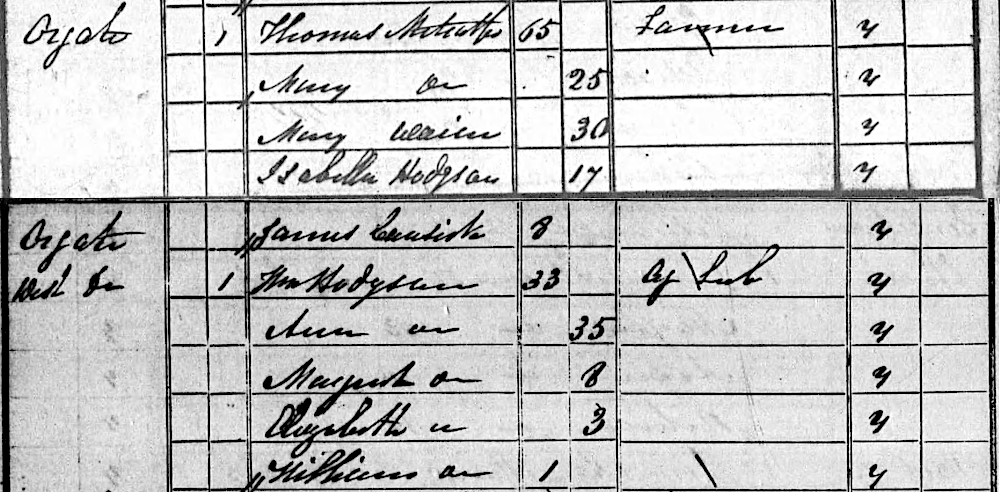 Orgate 1 Thomas Metcalfe 65 Farmer y
Mary Do 25 y
Mary 30 y
Isabella Hodgson 17 y
Orgate James 8 y
West Do 1 Wm Hodgson 33 Ag Lab y
Ann Do 35 y
Margaret Do 8 y
Elizabeth Do 3 y
William Do 1 y